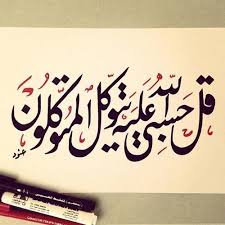 قل حسبي الله عليه يتوكل المتوكلون